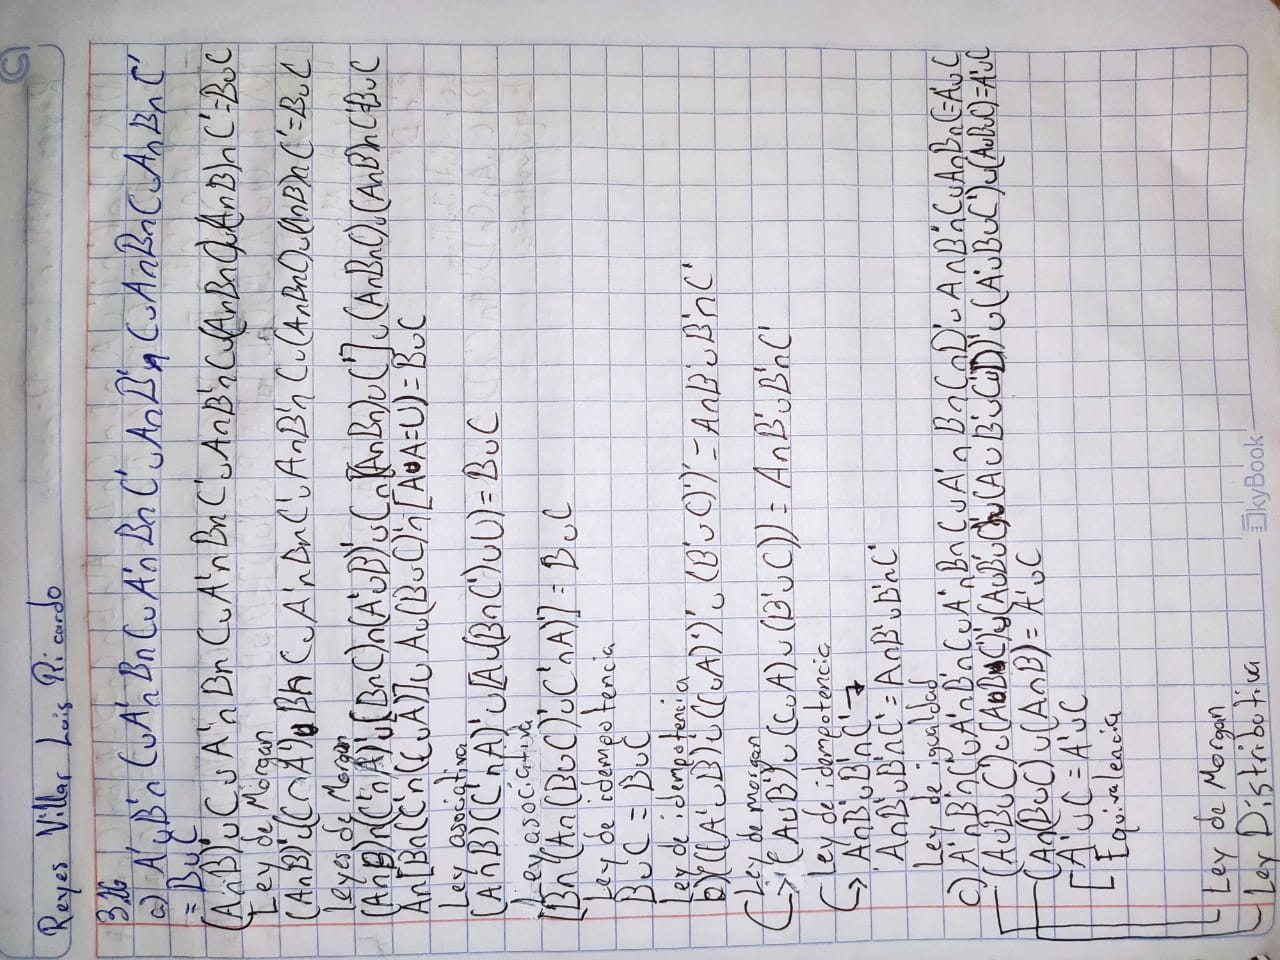 Reyes Villar Luis Ricardo
3.26
a) A'∪B'∩ C∪A'∩ B∩ C∪ A'∩ B∩ C'∪ A∩ B'∩ C∪A∩B∩C∪A∩B∩ C'
= B∪C
(A∩B)'∪ C∪ A'∩ B∩ C∪A'∩ B∩ C'∪ A∩B'∩ C∪(A∩B∩C)∪(A∩B)∩ C'=B∪C
Ley de Morgan
(A∩B)'∪(C∩A') B∩ C∪ A'∩ B∩C'∪ A∩B'∩ C∪(A∩B∩C)∪(A∩B)∩ C'=B∪C
Leyes de Morgan
(A∩B)∩(C'∩A)'∪(B∩C)∩(A'∪B)'∪C∩[(A∩B∩)∪C']∪(A∩B∩C)∪(A∩B)∩C'=B∪C
A∩[B∩(C'∩(C∪A)]∪ A∪(B∪C)'∩ [A∪A=U)=B∪C
Ley asociativa
(A∩B)(C'∩A)'∪[A∪(B∩C')∪U)=B∪C
Ley asociativa
[B∩'(A∩(B∪C)'∪C'∩A)']= B∪C
Ley de idempotencia
B∪C = B∪C
Ley de idempotencia
b)(((A'∪B)'∪((C∪A)')'∪ (B'∪C)')'=A∩B'∪B'∩C'
Ley de morgan
(A∪B')∪((C∪A)∪(B'∪C))= A∩B'∪B'∩C'
Ley de idempotencia
A∩B'∪B'∩C'
A∩B'∪B'∩C'=A∩B'∪B'∩C'
Ley de igualdad
c) A'∩B'∩C'∪A'∩B'∩C∪A'∩B∩C∪A'∩ B∩C∩D'∪ A∩B'∩C∪A∩B∩C=A'∪C
(A∪B∪C')∪(A∪B∪C)'∪(A∪B'∪C)'∪(A∪ B'∪C'∪D)'∪(A'∪B∪C')∪(A∪B∪C)=A'∪C
(A∩(B∪C)∪(A∩B)= A'∪C
A'∪C=A'∪C
Equivalencia
Ley de Morgan
Ley Distributiva
SkyBook